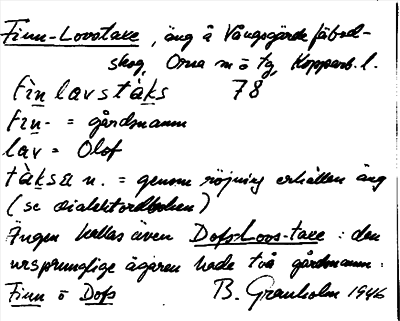 Finn-Lovstaxe, äng å Vångsgärde fäbod-
skog, Orsa m o tg, Kopparb. l.
Fin lavstàks 78
Fin- = gårdsnamn
lav = Olof
tàksa n. = genom röjning erhållen äng
(se dialektordboken)
Ängen kallas även DofsLovs-taxe : den
ursprunglige ägaren hade två gårdsnamn:
Finn o Dofs B. Granholm 1946